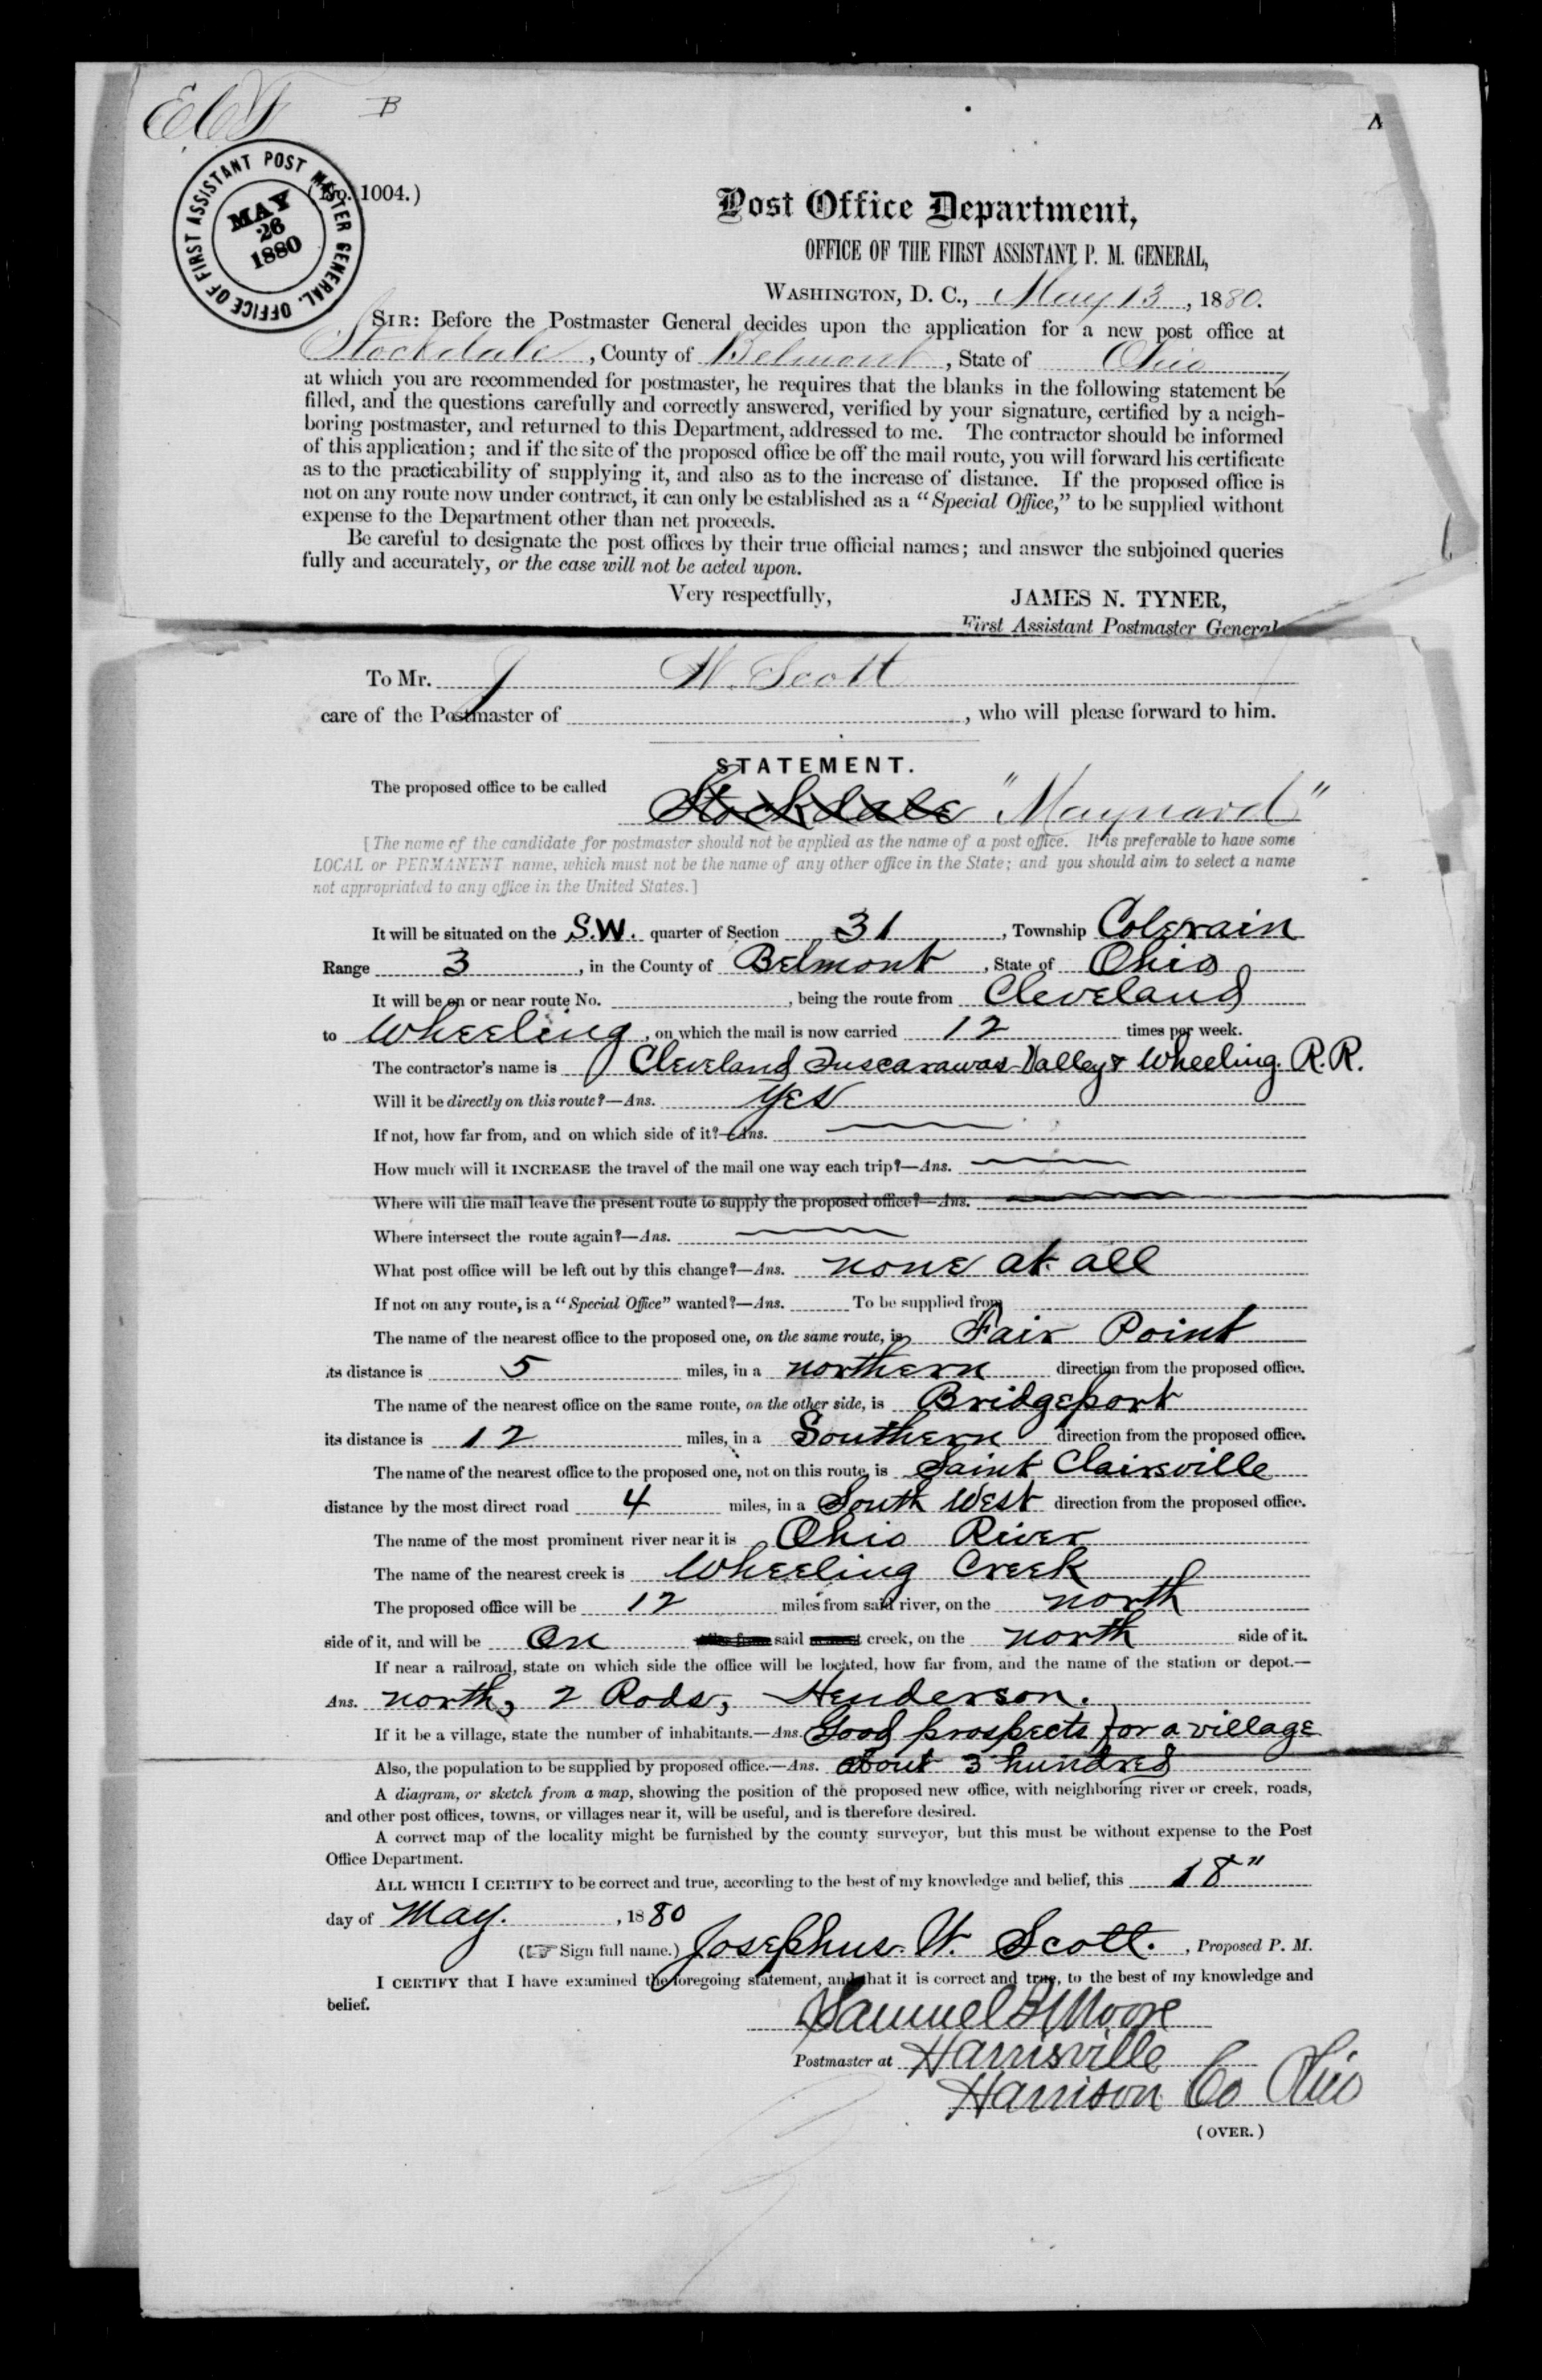 B
A
(No. 1004.)
OFFICE OF FIRST ASSISTANT POST MASTER GENERAL.
MAY
26
1880
Post Office Department,
OFFICE OF THE FIRST ASSISTANT P. M. GENERAL,
WASHINGTON, D. C., May 13, 1880.
SIR: Before the Postmaster General decides upon the application for a new post office at
Stockdale, County of Belmont, State of Ohio,
at which you are recommended for postmaster, he requires that the blanks in the following statement be
filled, and the questions carefully and correctly answered, verified by your signature, certified by a neigh-
boring postmaster, and returned to this Department, addressed to me. The contractor should be informed
of this application; and if the site of the proposed office be off the mail route, you will forward his certificate
as to the practicability of supplying it, and also as to the increase of distance. If the proposed office is
not on any route now under contract, it can only be established as a "Special Office," to be supplied without
expense to the Department other than net proceeds.
Be careful to designate the post offices by their true official names; and answer the subjoined queries
fully and accurately, or the case will not be acted upon.
Very respectfully,
JAMES N. TYNER,
First Assistant Postmaster General.
To Mr. J W. Scott
care of the Postmaster of , who will please forward to him.
STATEMENT.
The proposed office to be called Stockdale "Maynard"
[The name of the candidate for postmaster should not be applied as the name of a post office. It is preferable to have some
LOCAL or PERMANENT name, which must not be the name of any other office in the State; and you should aim to select a name
not appropriated to any office in the United States.]
It will be situated on the S.W. quarter of Section 31, Township Colerain
Range 3, in the County of Belmont, State of Ohio
It will be on or near route No. , being the route from Cleveland
to Wheeling, on which the mail is now carried 12 times per week.
The contractor's name is Cleveland Tuscarawas Valley & Wheeling. R.R.
Will it be directly on this route?—Ans. Yes
If not, how far from, and on which side of it?—Ans.
How much will it INCREASE the travel of the mail one way each trip?—Ans.
Where will the mail leave the present route to supply the proposed office?—Ans.
Where intersect the route again?—Ans.
What post office will be left out by this change?—Ans. none at all
If not on any route, is a "Special Office" wanted?—Ans. To be supplied from
The name of the nearest office to the proposed one, on the same route, is Fair Point
its distance is 5 miles, in a northern direction from the proposed office.
The name of the nearest office on the same route, on the other side, is Bridgeport
its distance is 12 miles, in a Southern direction from the proposed office.
The name of the nearest office to the proposed one, not on this route, is Saint Clairsville
distance by the most direct road 4 miles, in a South West direction from the proposed office.
The name of the most prominent river near it is Ohio River
The name of the nearest creek is Wheeling Creek
The proposed office will be 12 miles from said river, on the north
side of it, and will be On said creek, on the north side of it.
If near a railroad, state on which side the office will be located, how far from, and the name of the station or depot.—
Ans. north, 2 Rods, Henderson.
If it be a village, state the number of inhabitants.—Ans. Good prospects for a village
Also, the population to be supplied by proposed office.—Ans. about 3 hundred
A diagram, or sketch from a map, showing the position of the proposed new office, with neighboring river or creek, roads,
and other post offices, towns, or villages near it, will be useful, and is therefore desired.
A correct map of the locality might be furnished by the county surveyor, but this must be without expense to the Post
Office Department.
ALL WHICH I CERTIFY to be correct and true, according to the best of my knowledge and belief, this 18"
day of May. , 1880
(☞ Sign full name.) Josephus. W. Scott. , Proposed P. M.
I CERTIFY that I have examined the foregoing statement, and that it is correct and true, to the best of my knowledge and
belief.
Samuel B Moore
Postmaster at Harrisville
Harrison Co Ohio
(OVER.)